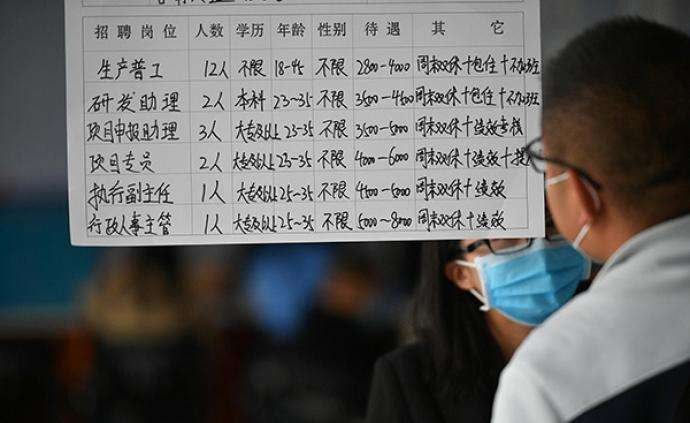 招聘岗位 人数 学历 年龄 性别 待遇 其它
生产普工 12人 不限 18-45 不限 2800-4000 周末双休+包住+不加班
研发助理 2人 本科 23~35 不限 3500-4500 周末双休+包住+不加班
项目申报助理 3人 大专及以上 23-35 不限 3500-5000 周末双休+绩效考核
项目专员 2人 大专及以上 23-35 不限 4000-6000 周末双休+绩效+提
执行副主任 1人 大专及以上 25-35 不限 4500-5000 周末双休+绩效
行政人事主管 1人 大专及以上 25~35 不限 5000~8000 周末双休+绩效